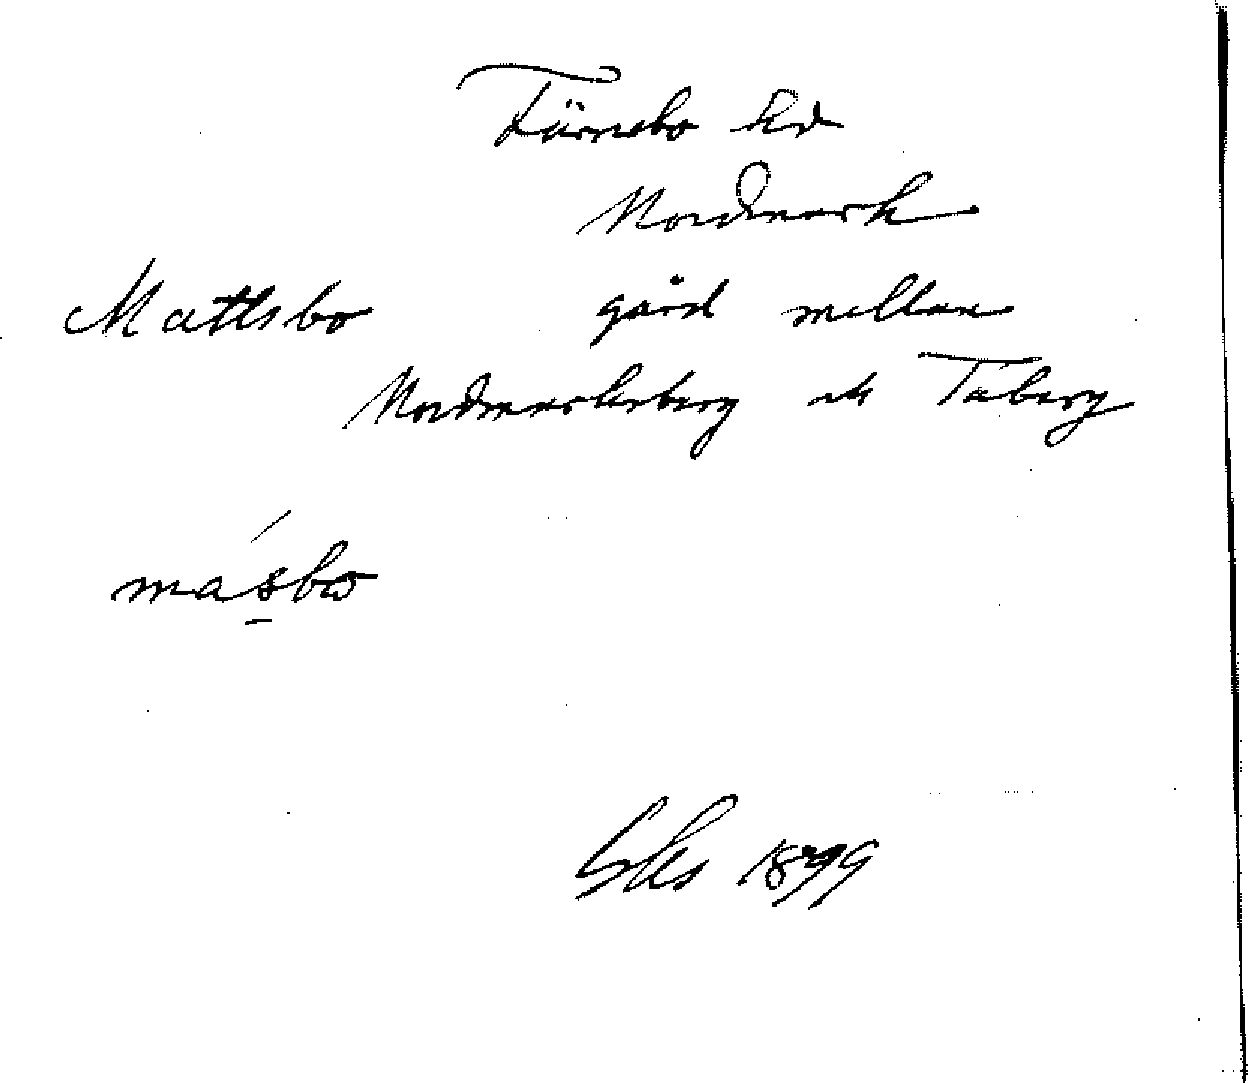 Färnebo hd
Nordmark
Mattsbo gård mellan
Nordmarksberg och Taberg
másbo
Sks 1899